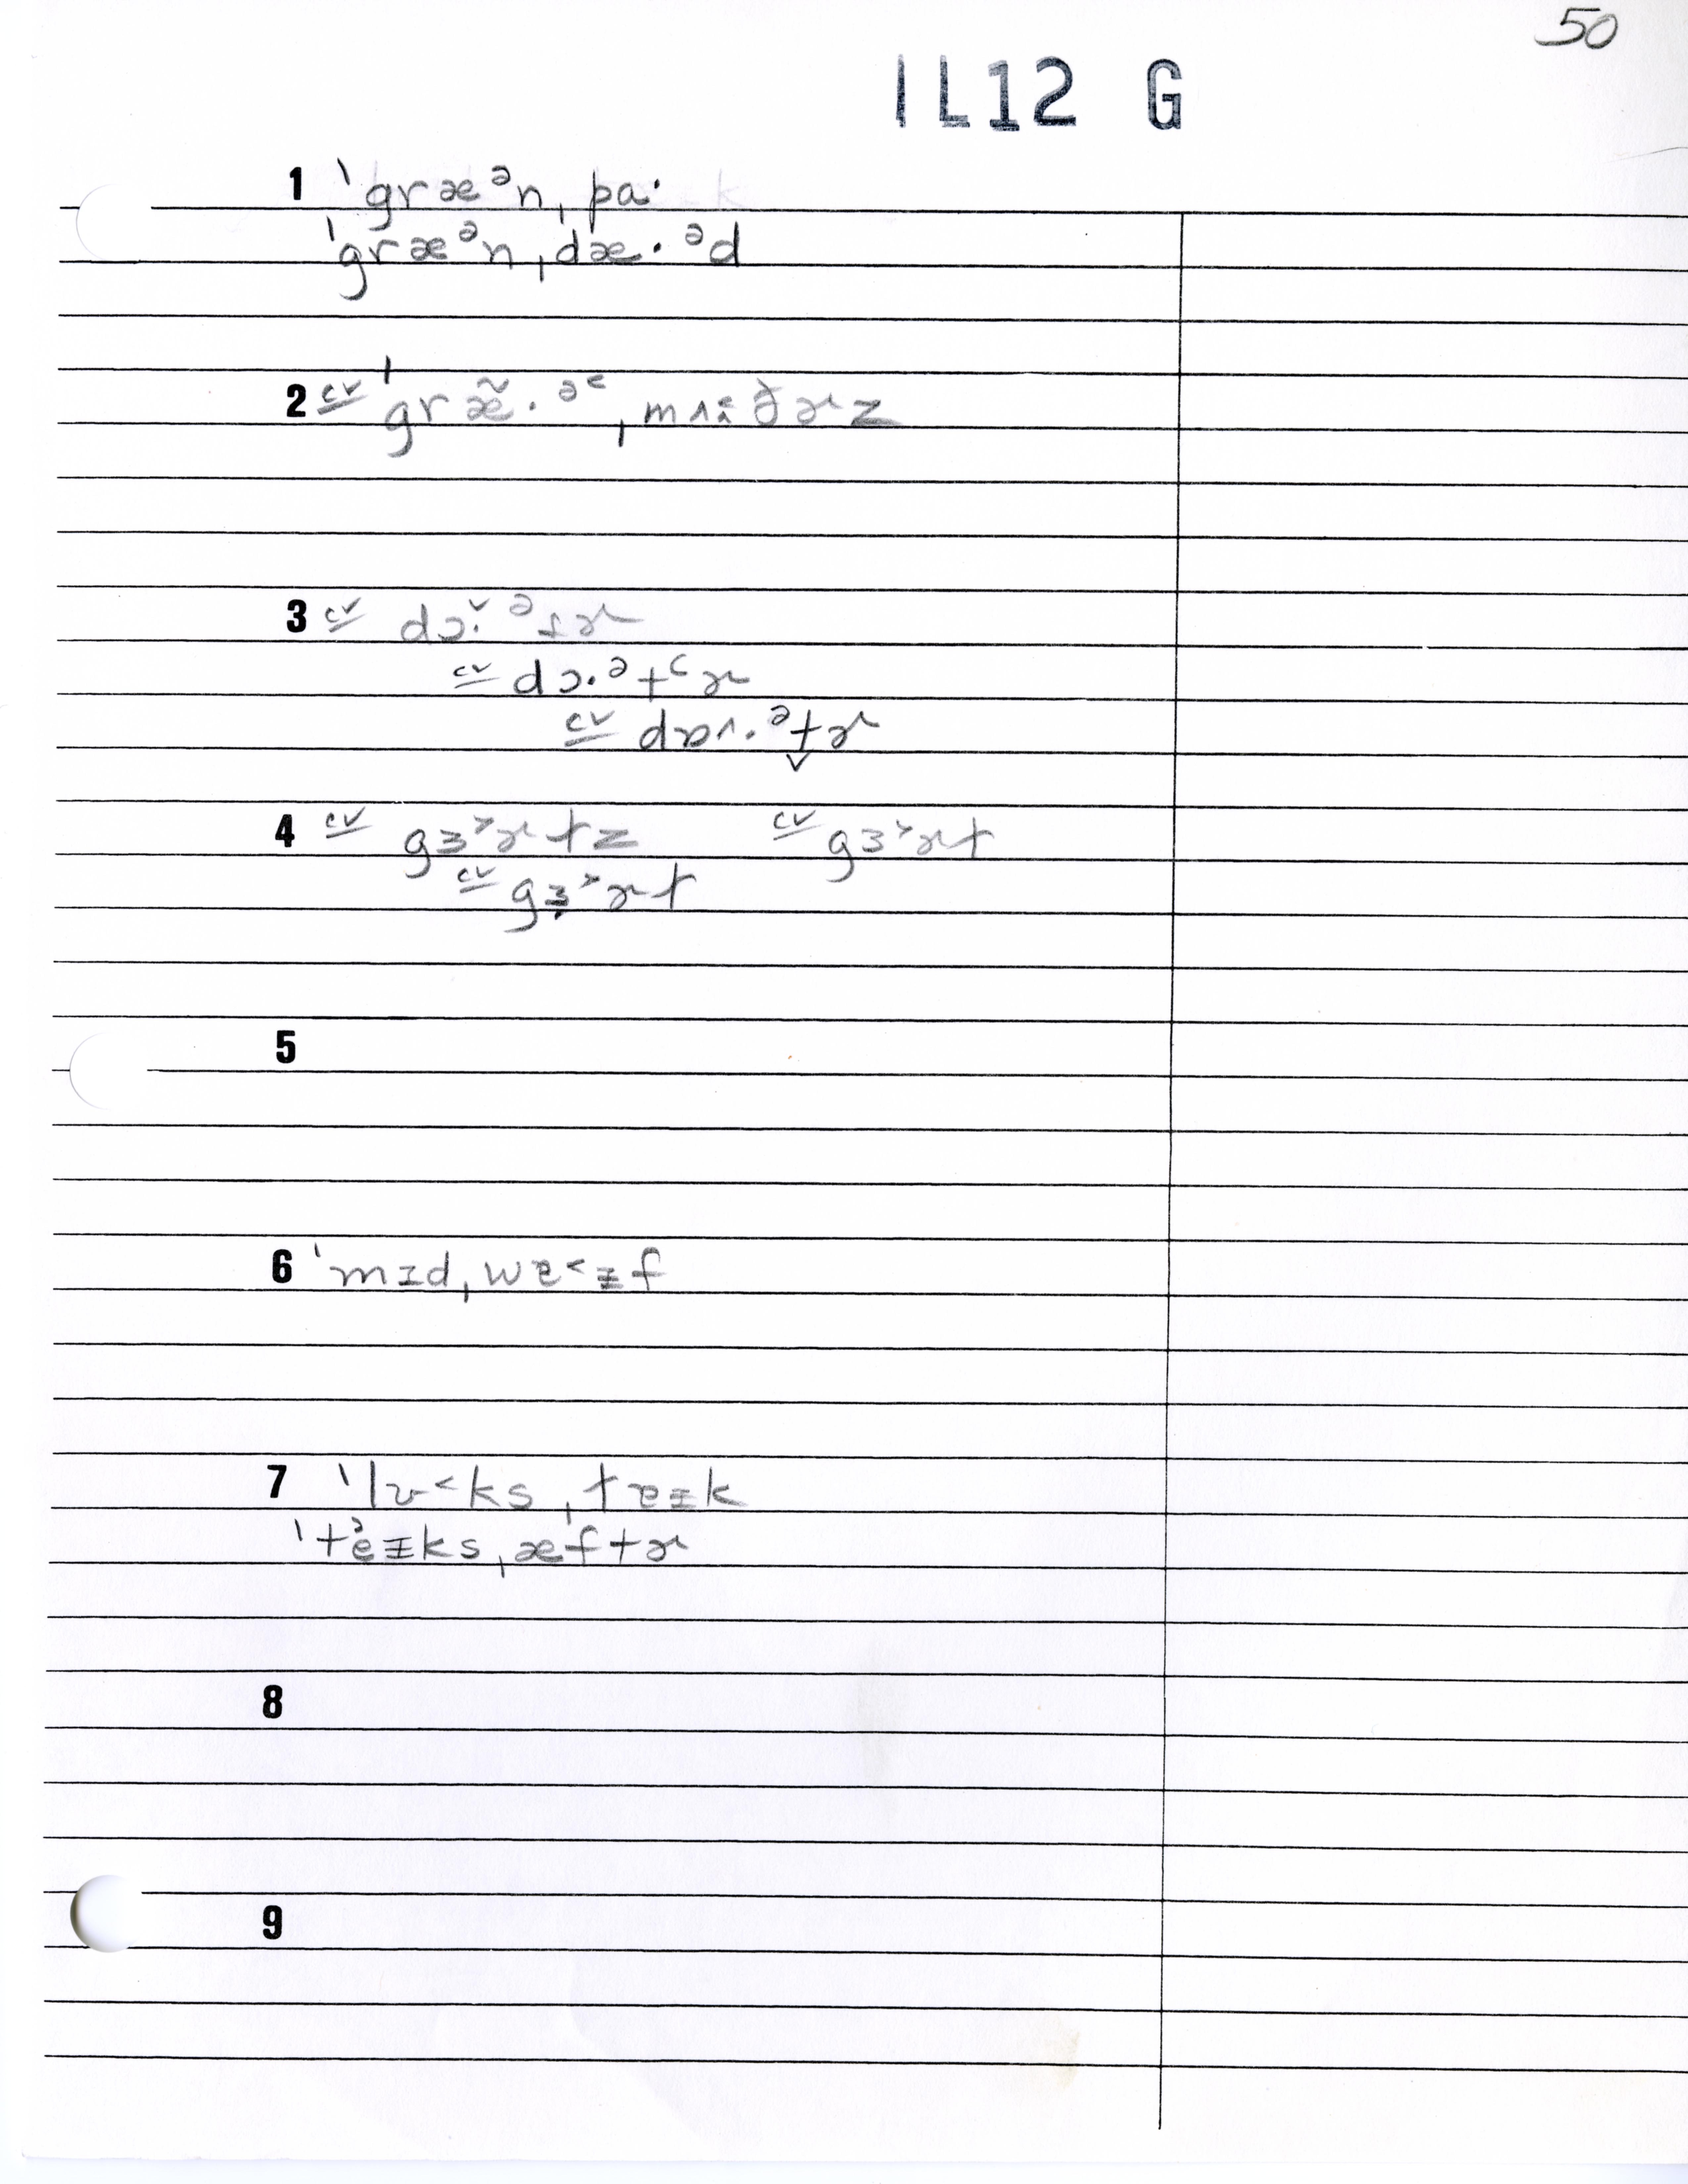 50
IL12 G
1 ˈgræᵊnˌpa·
ˈgræᵊnˌdæ·ᵊd
2 cv ˈgræ̃·ᵊ˂ˌmʌ
3 cv dɔ
cv dɔ·ᵊt˓ɚ
cv dɒʌ·ᵊt̬ɚ
4 cv gɜ˃ɚtz cv gɜ˃ɚt
cv gɜ˃ɚt
5
6 ˈmɪdˌwe˂ɪf
7 ˈlʊ˂ksˌteɪk
ˈteɪksˌæftɚ
8
9